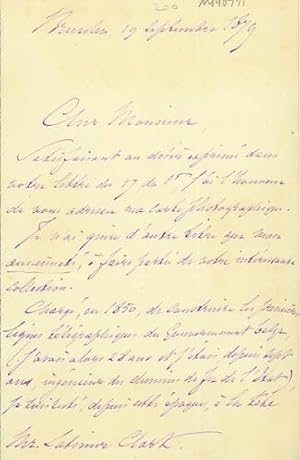 Bruxelles, 19 Septembre 1879
Cher Monsieur,
Satisfaisant au désir exprimé dans
votre lettre du 17 de ct j'ai l'honneur
de vous adresser ma carte photographique.
Je n'ai guère d'autre titre que mon
ancienneté, à faire partie de votre intéressante
collection.
Chargé, en 1850, de construire les premières
lignes télégraphiques du Gouvernement belge,
(j'avais alors 28 ans et j'étais depuis sept
ans, ingénieur des chemins de fer de l'État),
je suis resté, depuis cette époque, à la tête
Mr. Latimer Clark.